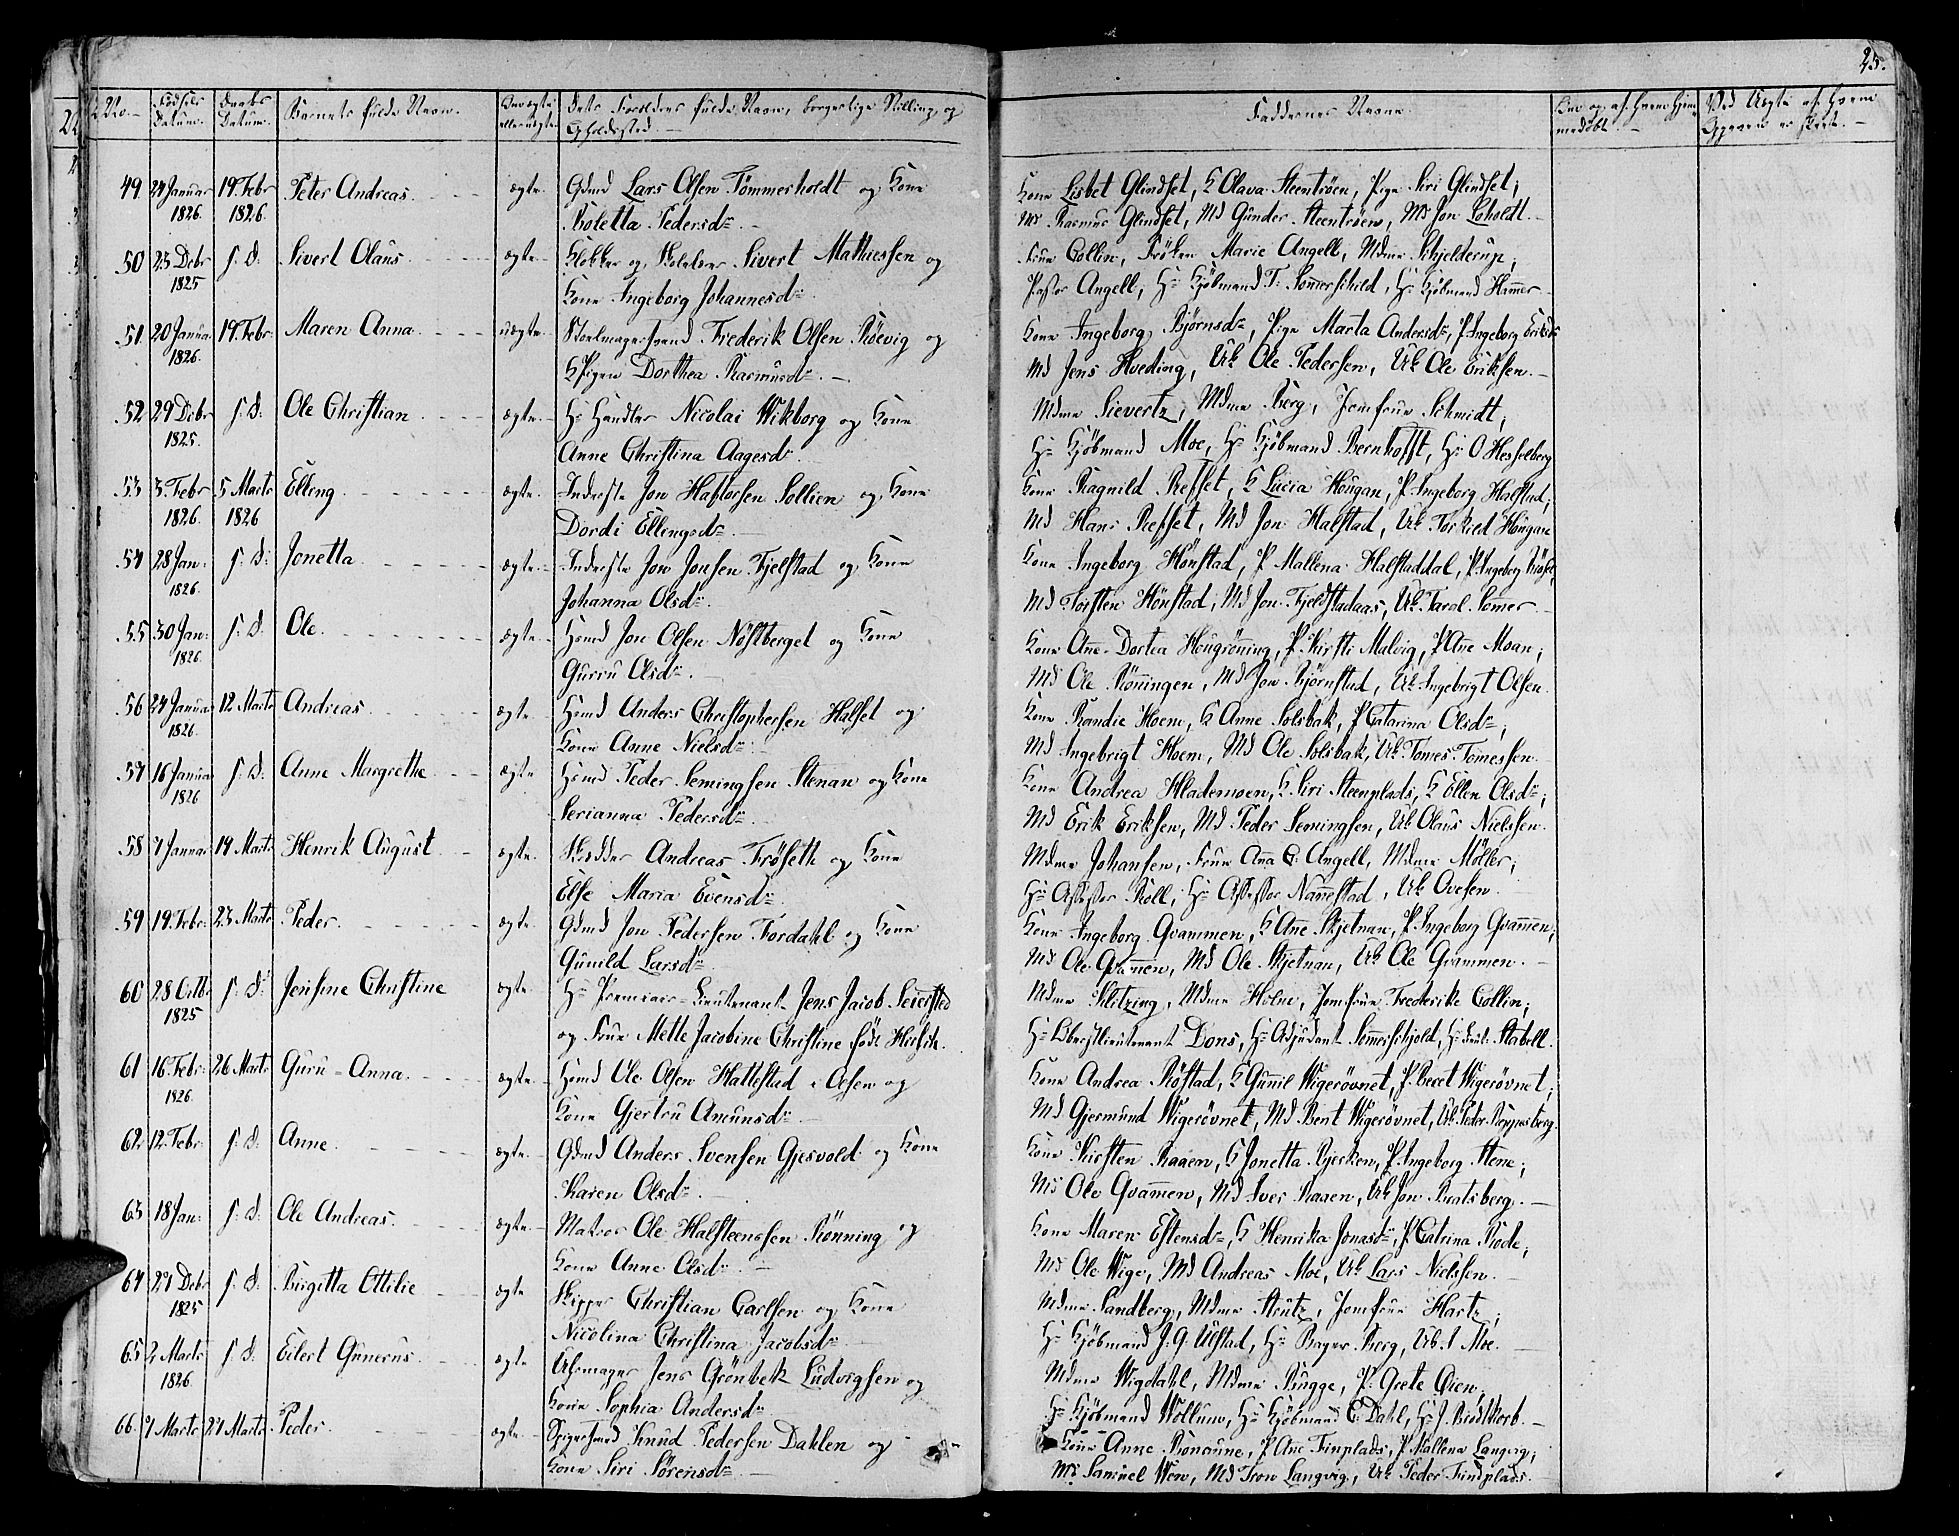 25.
No. Fødsels Datum. Daabs Datum. Barnets fulde Navn. Om ægte eller uægte Dets Forældres fulde Navn, borgerlige Stilling og Opholdssted. Faddernes Navne Om og af hvem Hjemmedøbt. Ved Uægte af hvem Opgaven er skeet.
49 24 Januar 1826. 19. Febr 1826. Peter Andreas. ægte. Gdmd Lars Olsen Tömmerholdt og Kone
Boletta Pedersdr.
Kone Lisbet Glindset, K Olava Steentröen, Pige Siri Glindset;
Md Rasmus Glindset, Md Gunder Steentröen, Md Jon Loholdt.
50 23 Debr 1825 s. d: Sivert Olaus ægte. Klokker og Skolelærer Sivert Mathiessen og
Kone Ingeborg Johannesdr
Frue Collin, Fröken Marie Angell, Mdme Schjelderup;
Pastor Angell, Hr Kjöbmand T. Sommerschild, Hr Kjöbmand Hammer
51 20 Januar 1826. 19. Febr: Maren Anna uægte. Frederik Olsen Röevig og
Pigen Dorthea Rasmusdr.
Kone Ingeborg Björnsdr, Pige Marta Andersdr, P. Ingeborg Eriksdr
Md Jens Hveding, Uk Ole Pedersen, Uk Ole Eriksen.
52 29 Debr 1825. s. d: Ole Christian ægte. Hr Handler Nicolai Wikborg og Kone
Anne Christina Aagesdr.
Mdme Sievertz, Mdme Berg, Jomfrue Schmidt;
Hr Kjöbmand Moe, Hr Kjöbmand Bernhofft, Hr O Hesselberg
53 3. Febr 1826. 5 Marts 1826 Elling ægte. Inderste Jon Haftorsen Sollien og Kone
Dordi Ellingsdr.
Kone Ragnild Refset, K Lucia Hougan, P. Ingeborg Halstad;
Md Hans Refset, Md Jon Halstad, Uk Torkild Hougan
54 28 Jan. 1826. s. d: Jonetta ægte. Inderste Jon Jonsen Fjelstad og Kone
Johanna Olsdr.
Kone Ingeborg Hönstad, P Mallena Halstaddal, P. Ingeborg
Md Torsten Hönstad, Md Jon Fjeldstadaas, Uk Tarol Sommer
55 30 Jan: 1826. s. d: Ole ægte. Hsmd Jon Olsen Nöstberget og Kone
Gurru Olsdr.
Kone Anne Dortea Hougröning, P. Kirsti Malvig, P Ane Moan;
Md Ole Rönningen, Md Jon Björnstad, Uk Ingebrigt Olsen.
56 24 Januar 1826. 12 Marts Andreas ægte. Hsmd Anders Christophersen Halset og
Kone Anne Nielsdr.
Kone Randie Hoem, K Anne Solsbak, P Catarina Olsdr;
Md Ingebrigt Hoem, Md Ole Solsbak, Uk Tomes Tomessen
57 16 Januar 1826 s. d: Anne Margrethe ægte Hsmd Peder Semingsen Stenan og Kone
Serianna Pedersdr.
Kone Andrea Hlademoen, K Siri Steenplads, K Ellen Olsdr;
Md Erik Eriksen, Md Peder Semingsen, Uk Olaus Nielssen.
58 7 Januar 14 Marts Henrik August ægte. Skrædder Andreas Fröseth og Kone
Else Maria Evensdr.
Mdme Johansen, Frue Ana C. Angell, Mdme Möller;
Hr Assessor Roll, Hr Assessor Nannestad, Uk Ovesen.
59 19. Febr: 23 Marts Peder ægte. Gdmd Jon Pedersen Fordahl og Kone
Gunild Larsdr.
Kone Ingeborg Qvammen, K Ane Skjetnan, P. Ingeborg Qvammen;
Md Ole Qvammen, Md Ole Skjetnan, Uk Ole Qvammen.
60 28 Octbr 1825 s. d: Jensine Christine ægte. Hr Premier-Lieutenant Jens Jacob Seiersted
og Frue Mette Jacobine Christine föd Hirsch.
Mdme Klitzing, Mdme Holm, Jomfrue Frederike Collin;
Hr Oberstlieutenant Dons, Hr Adjudant Sommerschjold, Hr Lieut: Stabell.
61 16. Febr: 1826. 26 Marts Guru-Anna. ægte. Hsmd Ole Olsen Hattestad og
Kone Gjertru Amunsdr
Kone Andrea Röstad, K Gunnil Wigerövnet, P. Beret Wigerövnet;
Md Gjermund Wigerövnet, Md Bent Wigerövnet, Uk Peder Reppesberg.
62. 12. Febr: s. d: Anne ægte. Gdmd Anders Svensen Gjesvold og Kone
Karen Olsdr.
Kone Kirsten Raaen, K Jonetta Bjerken, P. Ingeborg Stene;
Md Ole Qvammen, Md Iver Raaen, Uk Jon Bratsberg.
63 18 Jan: s. d: Ole Andreas. ægte Matros Ole Halsteenssen Rönning og
Kone Anne Olsdr.
Kone Maren Estensdr, K Henrika Jonasdr, P. Catrina Rode;
Md Ole Wige, Md Andreas Moe, Uk Lars Nielssen.
64 27 Debr 1825 s. d: Birgitta Ottilie ægte Skipper Christian Carlsen og Kone
Nicolina Christina Jacobsdr.
Mdme Sandberg, Mdme Strutz, Jomfrue Hartz;
Hr Kjöbmand J. G. Ulstad, Hr Bager Berg, Uk. Moe.
65 2 Marts 1826. s. d: Eilert Gunerus ægte Uhrmager Jens Grönbek Ludvigsen og
Kone Sophia Andersdr.
Mdme Wigdahl, Mdme Bugge, P. Grete Öien;
Hr Kjöbmand Wollum, Hr Kjöbmand C. Dahl, Hr J. Brodtkorb.
66. 7 Marts 27 Marts Peder ægte. Knud Pedersen Dahlen og
Kone Siri Sörensdr.
Kone Anne Ronaune, P. Ane Finplads, P. Mallena Langvig;
Md Samuel Wen, Md Tron Langvig, Uk Peder Findplads.